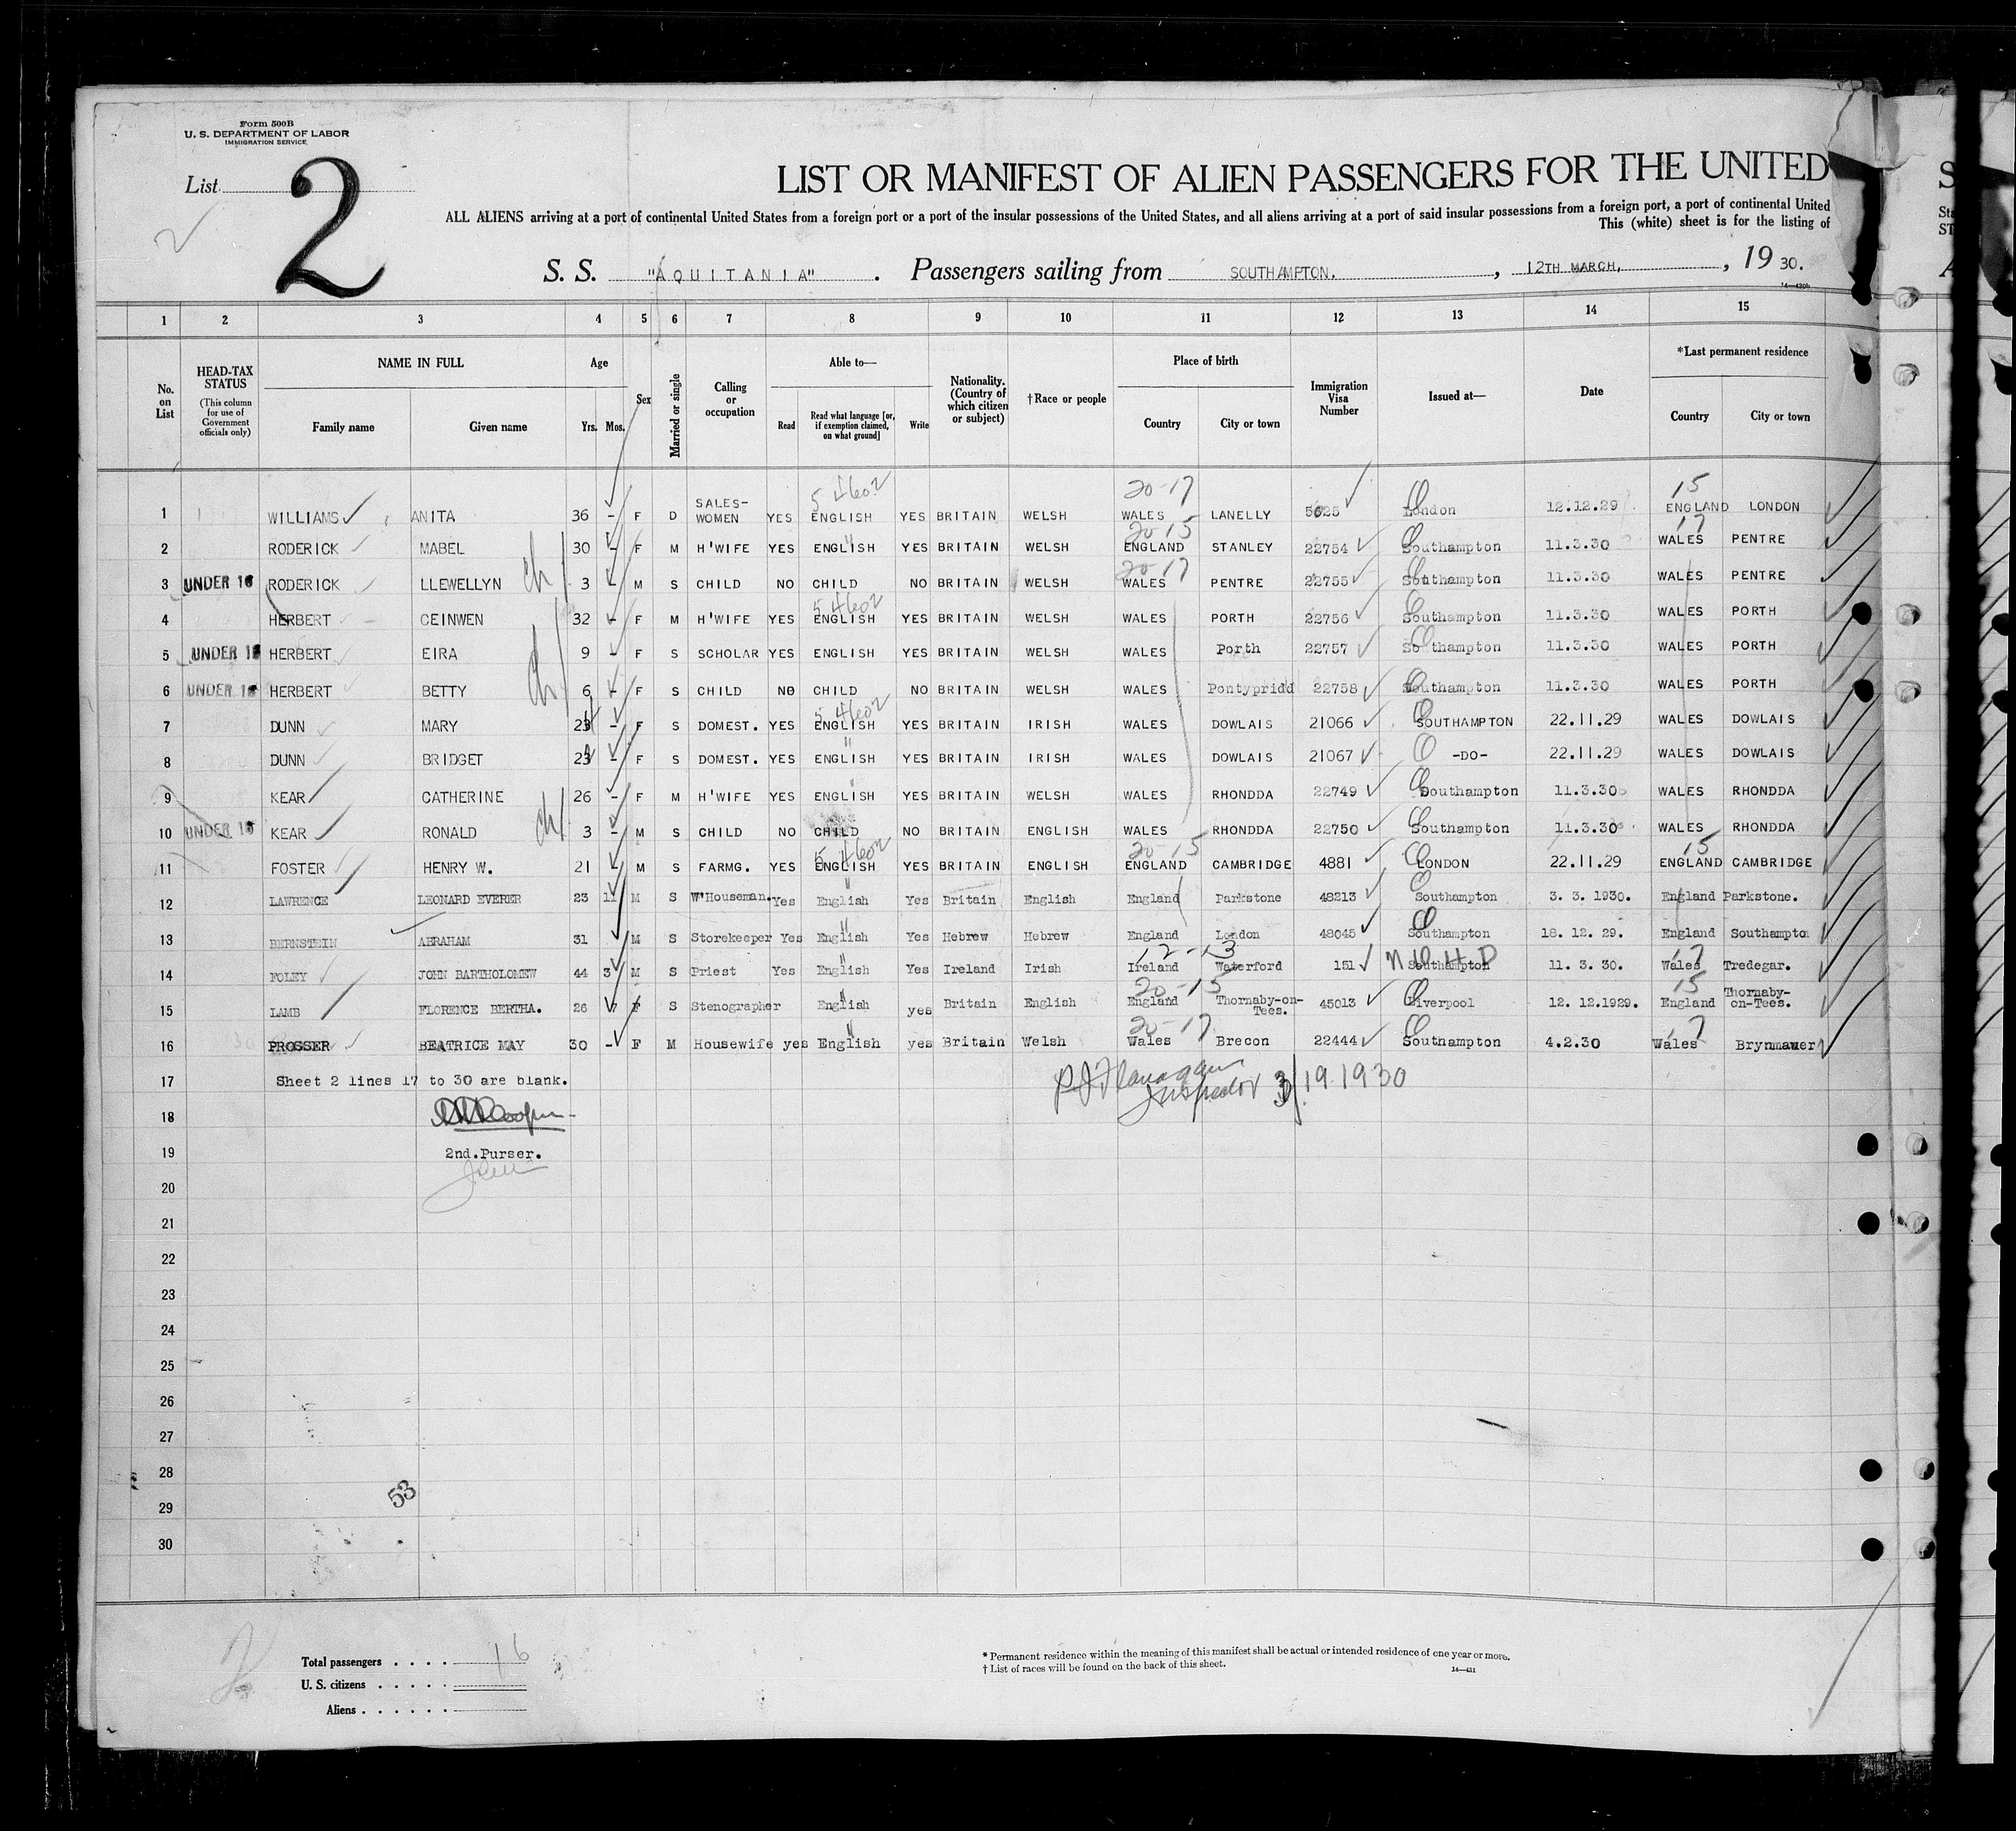 Form 500B
U. S. DEPARTMENT OF LABOR
IMMIGRATION SERVICE
List 2
LIST OR MANIFEST OF ALIEN PASSENGERS FOR THE UNITED
ALL ALIENS arriving at a port of continental United States from a foreign port or a port of the insular possessions of the United States, and all aliens arriving at a port of said insular possessions from a foreign port, a port of continental United
This (white) sheet is for the listing of
S. S. "AQUITANIA" . Passengers sailing from SOUTHAMPTON. , 12TH MARCH, , 19 30.
1 2 3 4 5 6 7 8 9 10 11 12 13 14 15
No. on List
HEAD-TAX STATUS (This column for use of Government officials only)
NAME IN FULL Family name Given name
Age Yrs. Mos.
Sex
Married or single
Calling or occupation
Able to— Read Read what language [or, if exemption claimed, on what ground] Write
Nationality. (Country of which citizen or subject)
†Race or people
Place of birth Country City or town
Immigration Visa Number
Issued at—
Date
*Last permanent residence Country City or town
5 4602 20-17 15
1 WILLIAMS ANITA 36 - F D SALES-WOMEN YES ENGLISH YES BRITAIN WELSH WALES LANELLY 5025 London 12.12.29 ENGLAND LONDON
20-15 17
2 RODERICK MABEL 30 - F M H'WIFE YES ENGLISH YES BRITAIN WELSH ENGLAND STANLEY 22754 Southampton 11.3.30 WALES PENTRE
20-17
3 UNDER 16 RODERICK LLEWELLYN ch 3 - M S CHILD NO CHILD NO BRITAIN WELSH WALES PENTRE 22755 Southampton 11.3.30 WALES PENTRE
5 4602
4 HERBERT CEINWEN 32 - F M H'WIFE YES ENGLISH YES BRITAIN WELSH WALES PORTH 22756 Southampton 11.3.30 WALES PORTH
5 UNDER 16 HERBERT EIRA 9 - F S SCHOLAR YES ENGLISH YES BRITAIN WELSH WALES Porth 22757 Southampton 11.3.30 WALES PORTH
6 UNDER 16 HERBERT BETTY ch 6 - F S CHILD NO CHILD NO BRITAIN WELSH WALES Pontypridd 22758 Southampton 11.3.30 WALES PORTH
5 4602
7 DUNN MARY - F S DOMEST. YES ENGLISH YES BRITAIN IRISH WALES DOWLAIS 21066 SOUTHAMPTON 22.11.29 WALES DOWLAIS
8 DUNN BRIDGET - F S DOMEST. YES ENGLISH YES BRITAIN IRISH WALES DOWLAIS 21067 -DO- 22.11.29 WALES DOWLAIS
9 KEAR CATHERINE 26 - F M H'WIFE YES ENGLISH YES BRITAIN WELSH WALES RHONDDA 22749 Southampton 11.3.30 WALES RHONDDA
10 UNDER 16 KEAR RONALD ch 3 - M S CHILD NO CHILD NO BRITAIN ENGLISH WALES RHONDDA 22750 Southampton 11.3.30 WALES RHONDDA
5 4602 20-15 15
11 FOSTER HENRY W. 21 - M S FARMG. YES ENGLISH YES BRITAIN ENGLISH ENGLAND CAMBRIDGE 4881 LONDON 22.11.29 ENGLAND CAMBRIDGE
12 LAWRENCE LEONARD EVERER 23 11 M S W'Houseman. Yes English Yes Britain English England Parkstone 48213 Southampton 3. 3. 1930. England Parkstone.
13 BERNSTEIN ABRAHAM 31 M S Storekeeper Yes English Yes Hebrew Hebrew England London 48045 Southampton 18. 12. 29. England Southampto
12-13 17
14 FOLEY JOHN BARTHOLOMEW 44 3 M S Priest Yes English Yes Ireland Irish Ireland Waterford 151 Southampton 11. 3. 30. Wales Tredegar.
20-15 15
15 LAMB FLORENCE BERTHA. 26 7 F S Stenographer English yes Britain English England Thornaby-on-Tees. 45013 Liverpool 12. 12.1929. England Thornaby-on-Tees.
20-17 17
16 PROSSER BEATRICE MAY 30 - F M Housewife yes English yes Britain Welsh Wales Brecon 22444 Southampton 4.2.30 Wales Brynmawer
17 Sheet 2 lines 17 to 30 are blank.
P J Flanagan Inspector 3/19 1930
18
19 2nd.Purser.
20
21
22
23
24
25
26
27
28
53
29
30
Total passengers . . . . 16
U. S. citizens . . . . .
Aliens . . . . . .
* Permanent residence within the meaning of this manifest shall be actual or intended residence of one year or more.
† List of races will be found on the back of this sheet.
14—431